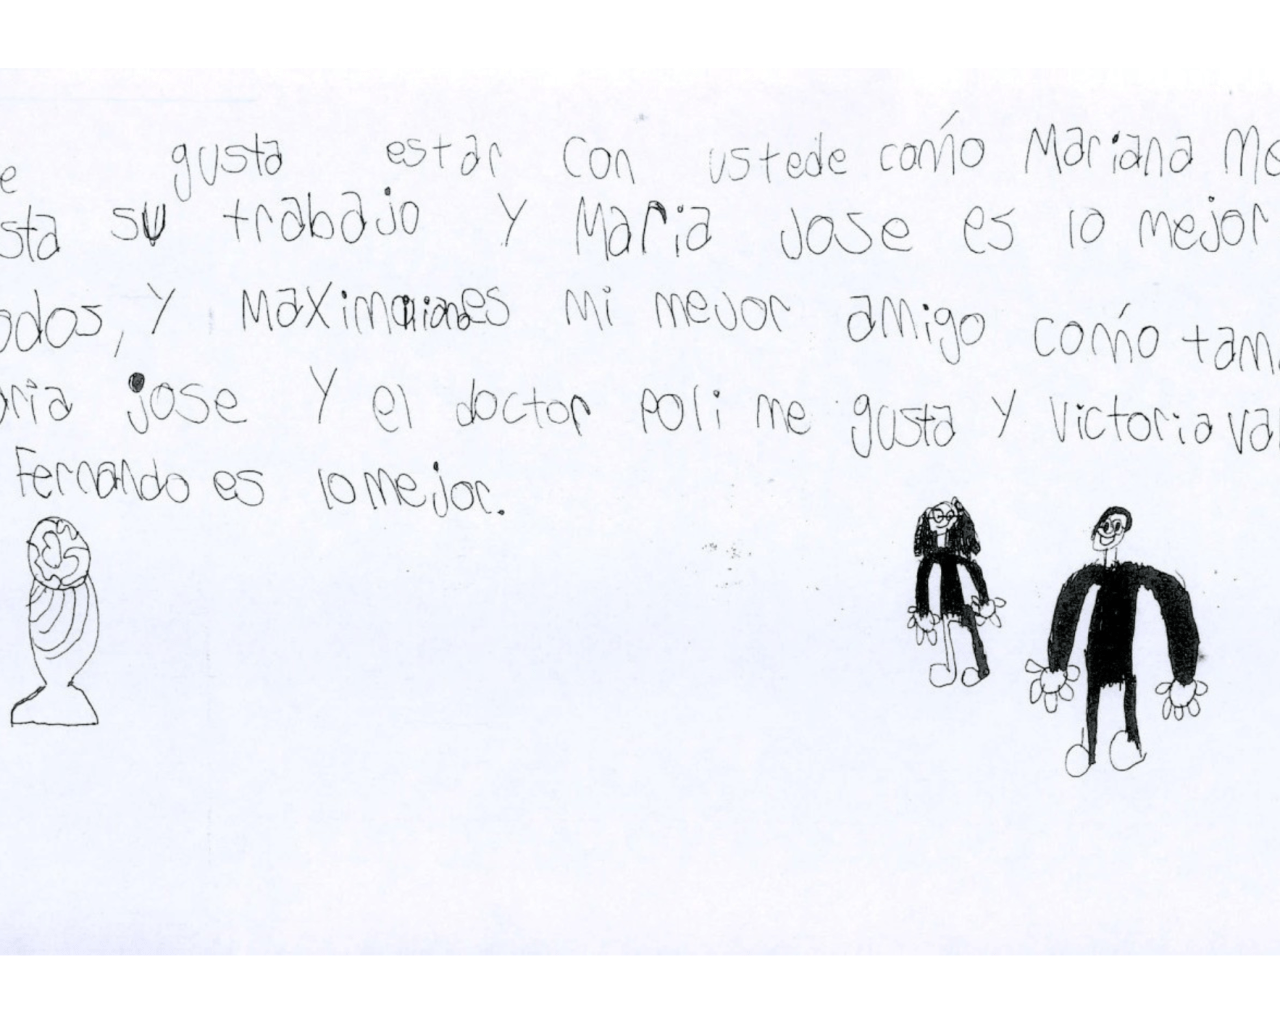 e gusta estar con ustede como Mariana Me
sta su trabajo y Maria Jose es lo mejor
odos, y Maximilianoes mi mejor amigo como tam
aria jose y el doctor Poli me gusta y Victoria val
Fernando es lo mejor.